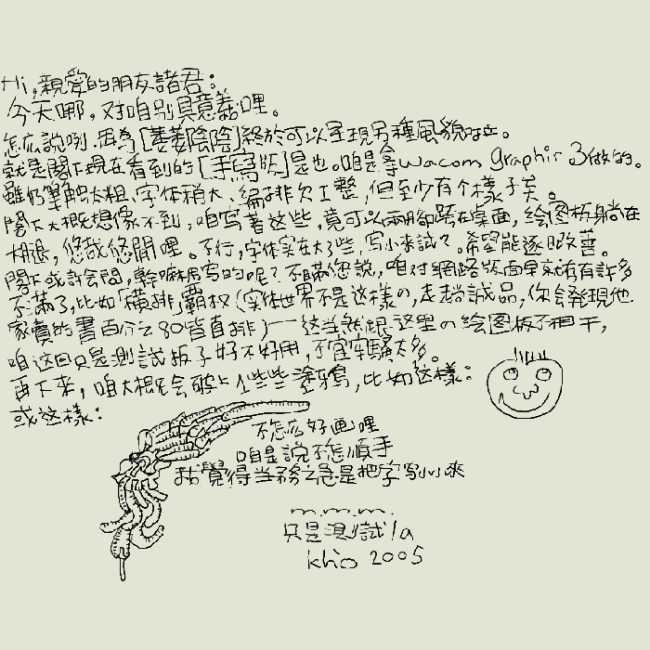 Hi,親愛的朋友諸君：
今天哪，对咱別具意義哩。
怎広說咧.因為[萋萋陰陰]終於可以呈現另種風貌啦。
就是閣下現在看到的[手寫版]是也。咱是拿wacom graphir 3做的。
雖仍筆触太粗、字体稍大、編排欠工整，但至少有个樣子矣。
閣下大概想像不到，咱写著這些，竟可以兩腳跨在桌面，绘图板躺在
大腿，悠哉悠閒哩。不行，字体实在大了些，写小來試？。希望能逐日改善。
閣下或許会問，幹嘛用写的呢？不瞞您說，咱对網路版面早就有許多
不滿了，比如「橫排」霸权（实体世界不是这樣の，走趟誠品，你会発現他
家賣的書百分之80皆直排）——这当然跟这里の绘图板不相干，
咱这回只是測試板子好不好用，不宜牢騷太多。
再下來，咱大概会破上一些些塗鴉，比如这樣：
或这樣：
不怎広好画哩
咱是說不怎順手
我覺得当務之急是把字写小來
m.m.m.
只是測試la
khio 2005